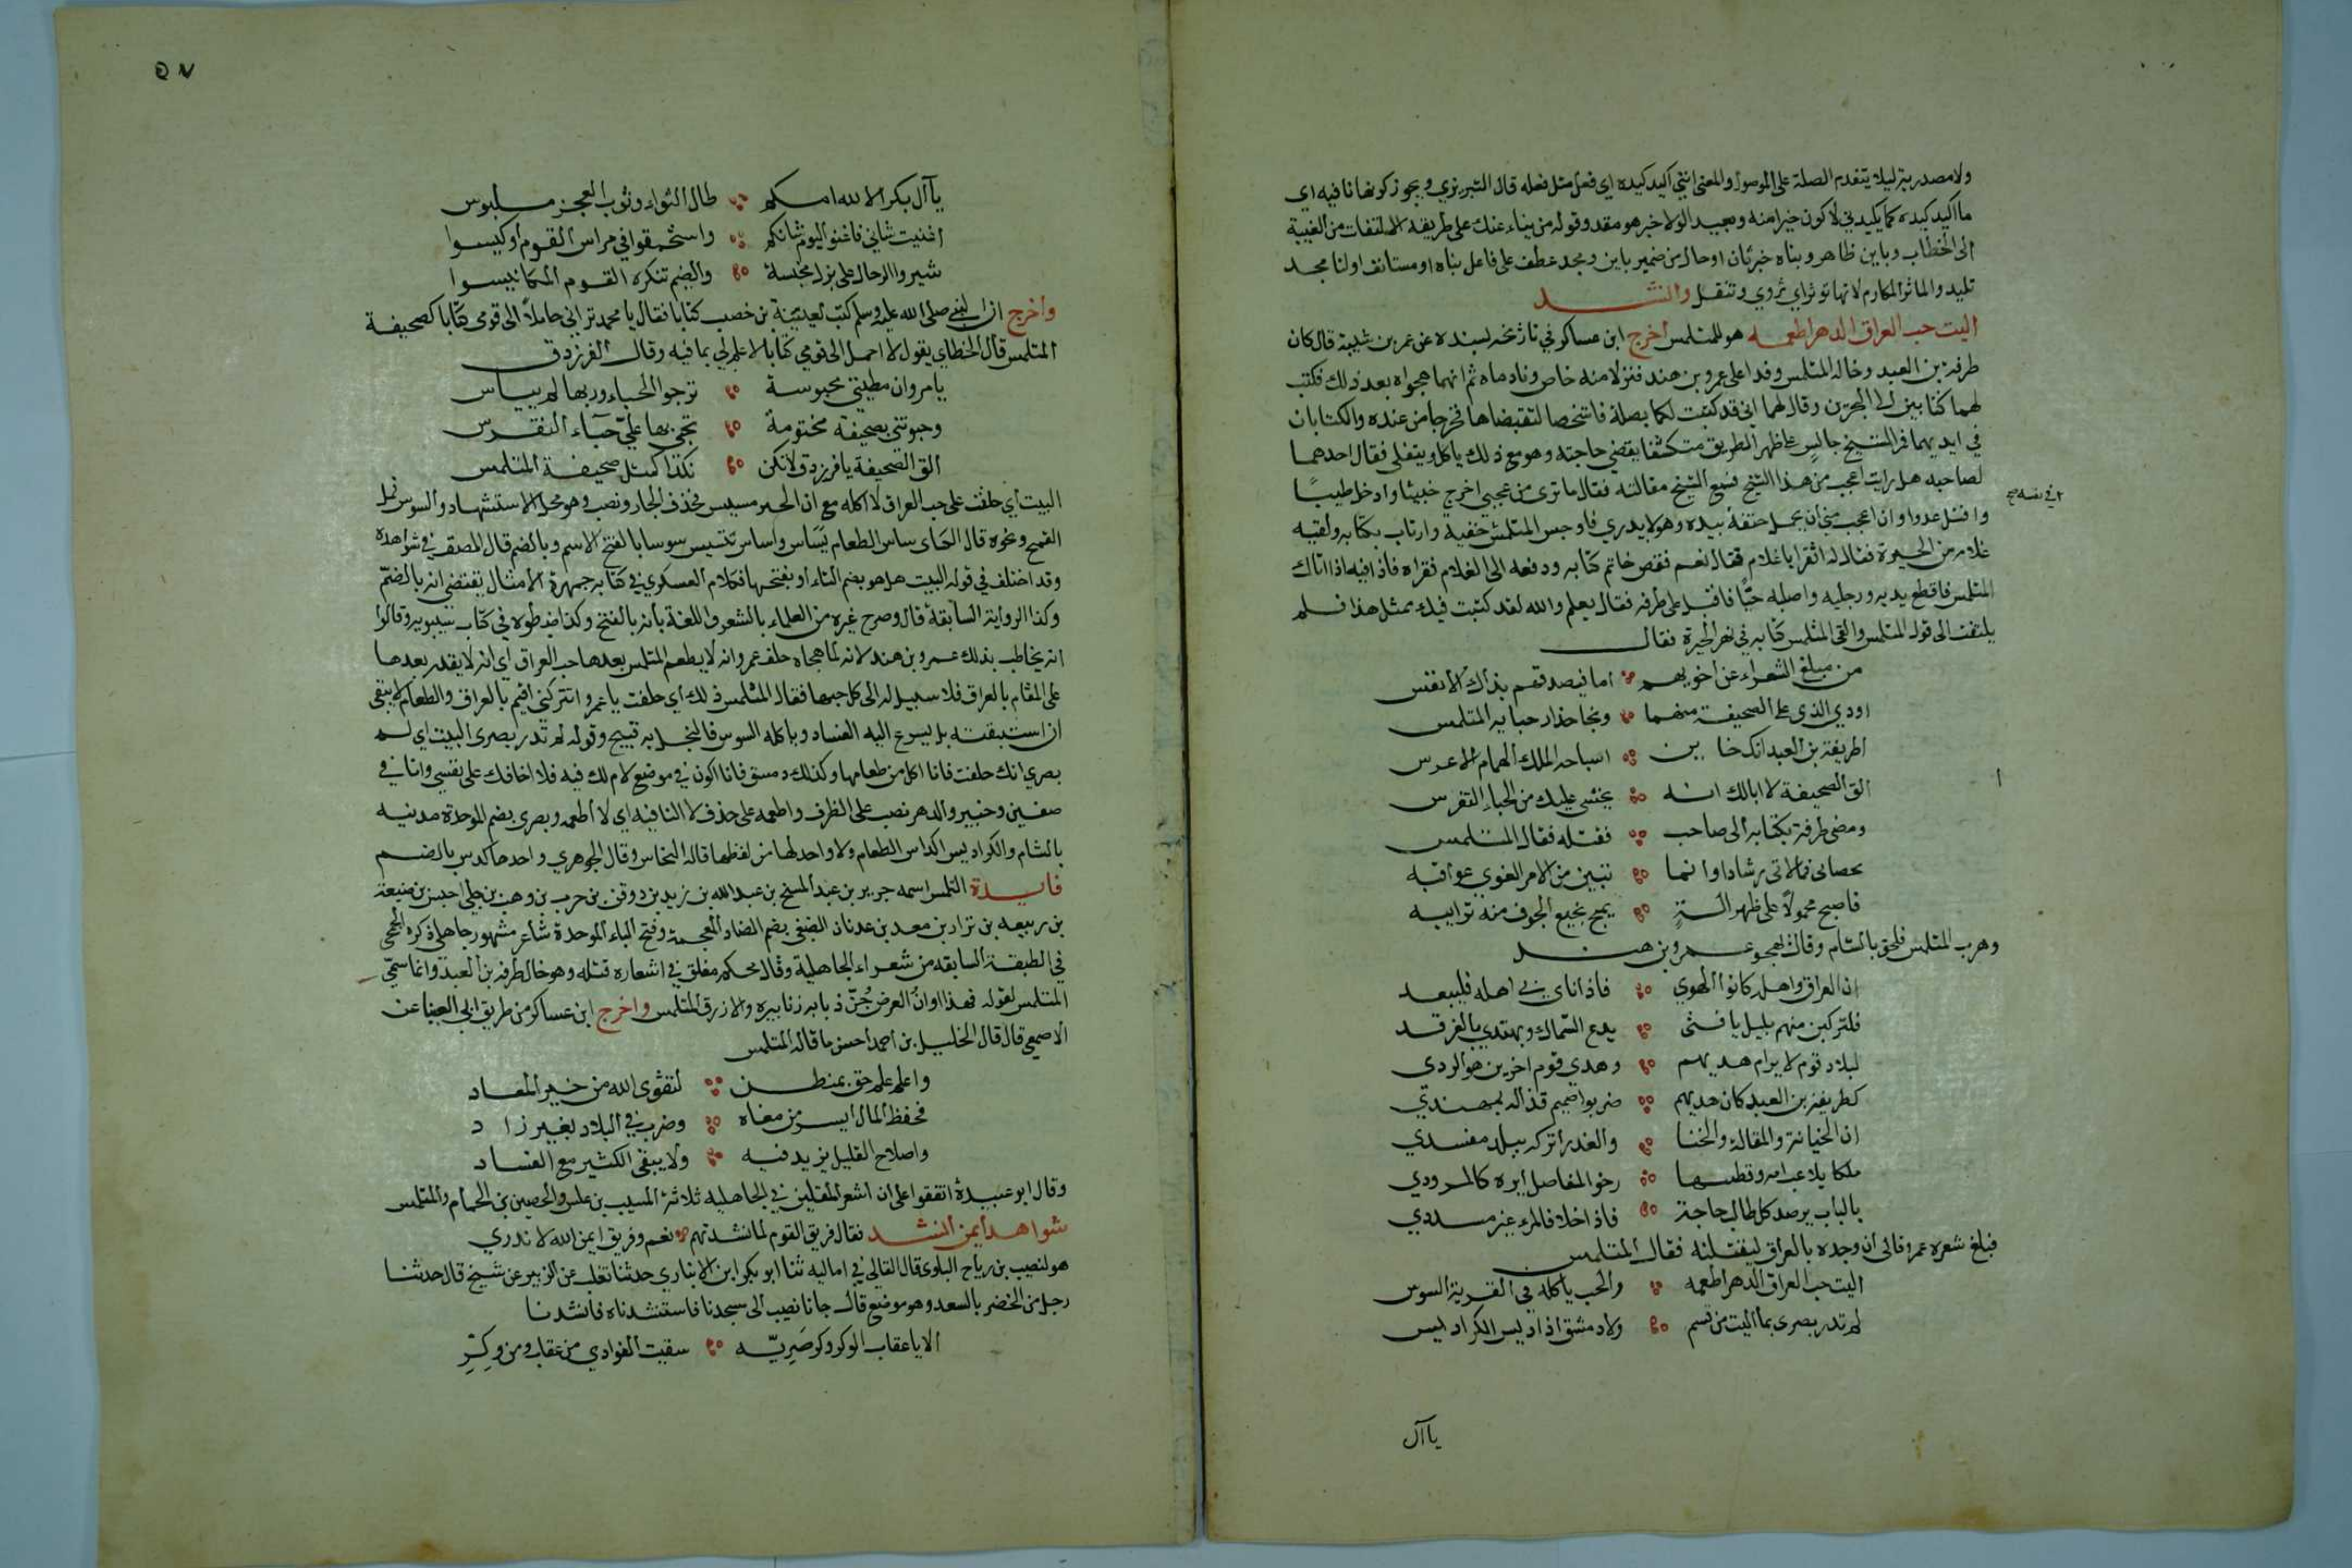 ولا مصدرية ليلا يتقدم الصلة على الموصول والمعنى انني اكيد كيده اي فعل مثل فعله قال التبريزي ويجوز كونها نافية اي
ما اكيد كيده كما يكيدني لاكون خيرا منه وبعيد الولا خبر هو مقدر وقوله من يناء عنك على طريقة الالتفات من الغيبة
الى الخطاب وباين ظاهر وبناه خبر ثان او حال من ضمير باين ومجد عطف على فاعل بناه او مستانف اولنا مجد
تليد والماثر المكارم لانها تؤثر اي تروي وتنقل وانشد
اليت حب العراق الدهر اطعمه هو للمتلمس اخرج ابن عساكر في تاريخه بسنده عن عمر بن شبة قال كان
طرفة بن العبد وخاله المتلمس وفدا على عمرو بن هند فنزلا منه خاص ونادماه ثم انهما هجواه بعد ذلك فكتب
لهما كتابين الى البحرين وقال لهما اني قد كتبت لكما بصلة فاشخصا لتقبضاها فخرجا من عنده والكتابان
في ايديهما فمرا بشيخ جالس على ظهر الطريق متكشفا يقضي حاجته وهو مع ذلك ياكل ويتفلى فقال احدهما
لصاحبه هل رايت اعجب من هذا الشيخ فسمع الشيخ مقالته فقال ما ترى من عجبي اخرج خبيثا وادخل طيبًا
واقتل عدوا وان اعجب مني من يحمل حتفه بيده وهو لا يدري فاوجس المتلمس خفية وارتاب بكتابه ولقيه
غلام من الحيرة فقال له اتقرا يا غلام فقال نعم ففض خاتم كتابه ودفعه الى الغلام فقراه فاذا فيه اذا اتاك
المتلمس فاقطع يديه ورجليه واصلبه حيًّا فاقبل على طرفه فقال تعلم والله لقد كتبت فيك بمثل هذا فلم
يلتفت الى قول المتلمس والقى المتلمس كتابه في نهر الحيرة فقال
من مبلغ الشعراء عن اخويهم امانيصدقهم بذاك الانفس
اودي الذي على الصحيفة منهما ونجا حذار حبايه المتلمس
اطريفة بن العبد انك خاين اسباحة الملك الهمام الاعرس
الق الصحيفة لا ابالك انه يخشى عليك من الحباء النقرس
ومضى طرفة بكتابه الى صاحب فقتله فقال المتلمس
عصاني فما لاقى رشادا وانما تبين من الامر الغوي عواقبه
فاصبح محمولاً على ظهر الة يمج نجيع الجوف منه ترايبه
وهرب المتلمس فلحق بالشام وقال يهجو عمرو بن هند
ان العراق واهله كانوا الهوي فاذا ناى بي اهله فليبعد
فلتركبن منهم بليل يا فتى يدع السماك ويهتدي بالفرقد
لبلاد قوم لا يرام هديهم وهدي قوم اخرين هو الردي
كطريفة بن العبد كان هديهم ضربوا صميم قذاله بمهندي
ان الخيانة والمقالة والخنا والغدر اتركه ببلد مفسدي
ملكا يلاعب امه وقطيبها رخو المفاصل ايره كالمرودي
بالباب يرصد كل طالب حاجة فاذا خلا فالمرء غير مسددي
فبلغ شعره عمرا فالى ان وجده بالعراق ليقتلنه فقال المتلمس
اليت حب العراق الدهر اطعمه والحب ياكله في القرية السوس
لم تدر بصرى بما اليت من قسم ولا دمشق اذا ديس الكراديس
يا آل
٥٧
يا آل بكر الا لله امكم طال الثواء وثوب العجز ملبوس
اغنيت شاني فاغنوا اليوم شانكم واستحمقوا في مراس القوم او كيسوا
شيروا الرحال على بزل مخيسة والضيم تنكره القوم المكاييسوا
واخرج ان النبي صلى الله عليه وسلم كتب لعيينة بن حصن كتابا فقال يا محمد تراني حاملاً الى قومي كتابا كصحيفة
المتلمس قال الخطابي يقول لا احمل الى قومي كتابا لا علم لي بما فيه وقال الفرزدق
يا مروان مطيتي محبوسة ترجوا الحباء وربها لم ييياس
وحبوتني بصحيفة مختومة تخشى بها علي حباء النقرس
الق الصحيفة يا فرزدق لا تكن نكدا كمثل صحيفة المتلمس
البيت اي حلفت على حب العراق لا اكله مع ان الحب متيسر فحذف الجار ونصب وهو محل الاستشهاد والسوس قمل
القمح ونحوه قال الكساى ساس الطعام يَسَاس واساس تسيس سوسا بالفتح الاسم وبالضم قال المصنف في شواهده
وقد اختلف في قوله اليت هل هو بضم التاء او بفتحها فكلام العسكري في كتابه جمهرة الامثال يقتضي انه بالضم
وكذا الرواية السابقة قال وصرح غيره من العلماء بالشعر واللغة بانه بالفتح وكذا ضبطوه في كتاب سيبويه وقالوا
انه يخاطب بذلك عمرو بن هند لانه لما هجاه حلف عمرو انه لا يطعم المتلمس بعدها حب العراق اي انه لا يقدر بعدها
على المقام بالعراق فلا سبيل له الى اكل حبها فقال المتلمس ذلك اي حلفت يا عمرو انتركني اقيم بالعراق والطعام لا يبقى
ان استبقيته بل يسرع اليه الفساد وياكله السوس فالبخل به قبيح وقوله لم تدر بصرى البيت اي لم
بصري انك حلفت فانا اكل من طعامها وكذلك دمشق فانا اكون في موضع لا امر لك فيه فلا اخافك على نفسي وانا في
والدهر نصب على الظرف واطعمه على حذف لا النافية اي لا اطعمه وبصرى بضم الموحدة مدينة
بالشام والكراديس اكداس الطعام ولا واحد لها من لفظها قاله النحاس وقال الجوهري واحدها كدس بالضم
فايدة المتلمس اسمه جرير بن عبد المسيح بن عبد الله بن زيد بن دوفن بن حرب بن وهب بن جلي احمس بن ضبيعة
بن ربيعه بن نزار بن معد بن عدنان الضبعي بضم الضاد المعجمة وفتح الباء الموحدة شاعر مشهور جاهلي ذكره الجمحي
في الطبقة السابقه من شعراء الجاهلية وقال محكم مفلق في اشعاره قلة وهو خال طرفه بن العبد وانما سمي
المتلمس لقوله فهذا اوان العرض جُنّ ذبابه زنابيره والازرق المتلمس واخرج ابن عساكر من طريق ابي العينا عن
الاصمعي قال قال الخليل بن احمد احسن ما قاله المتلمس
واعلم علم حق بمنظن لتقوى الله من خير المعاد
فحفظ المال ايسر من بغاه وضرب في البلاد بغير زاد
واصلاح القليل يزيد فيه ولا يبقى الكثير مع الفساد
وقال ابو عبيدة اتفقوا على ان اشعر المقلين في الجاهلية ثلاثة المسيب بن علس والحصين بن الحمام والمتلمس
شواهد أيمن انشد فقال فريق القوم لما نشدتهم نعم وفريق ايمن الله لا ندري
هو لنصيب بن رباح قال القالي في اماليه ثنا ابو بكر ابن الانباري حدثنا ثعلب عن الزبير عن شيخ قال حدثنا
رجل من الخضر بالسعد وهو موضع قال جانا نصيب الى مسجدنا فاستنشدناه فانشدنا
الا يا عقاب الوكر وكر ضَرِيّه سقيت الغوادي من عقاب ومن وكرِ